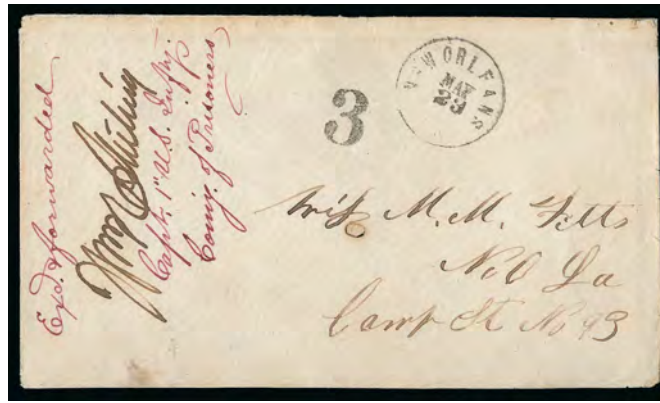 Exd. & forwarded
Capt. 1st U.S. Infy.
Comy. of Prisoners
3
NEW ORLEANS
MAY
23
Miss M. M. Fitts
N.O La
Camp St No 93